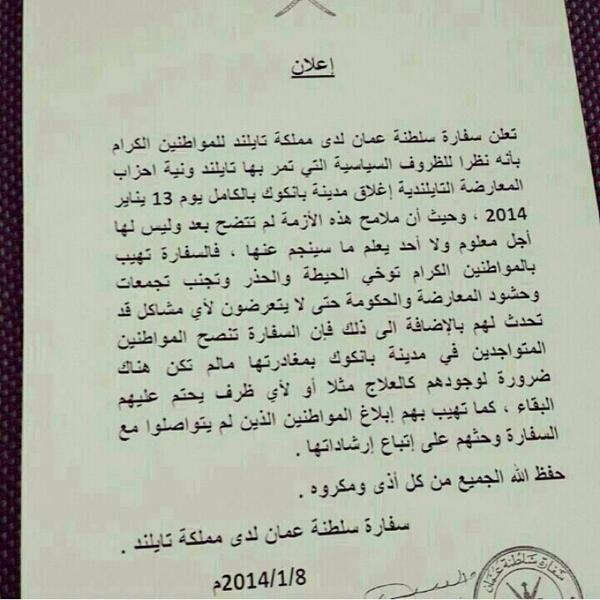 إعلان
تعلن سفارة سلطنة عمان لدى مملكة تايلند للمواطنين الكرام
بأنه نظرا للظروف السياسية التي تمر بها تايلند ونية احزاب
المعارضة التايلندية إغلاق مدينة بانكوك بالكامل يوم 13 يناير
2014 ، وحيث أن ملامح هذه الأزمة لم تتضح بعد وليس لها
أجل معلوم ولا أحد يعلم ما سينجم عنها ، فالسفارة تهيب
بالمواطنين الكرام توخي الحيطة والحذر وتجنب تجمعات
وحشود المعارضة والحكومة حتى لا يتعرضون لأي مشاكل قد
تحدث لهم بالإضافة الى ذلك فإن السفارة تنصح المواطنين
المتواجدين في مدينة بانكوك بمغادرتها مالم تكن هناك
ضرورة لوجودهم كالعلاج مثلا أو لأي ظرف يحتم عليهم
البقاء ، كما تهيب بهم إبلاغ المواطنين الذين لم يتواصلوا مع
السفارة وحثهم على إتباع إرشاداتها .
حفظ الله الجميع من كل أذى ومكروه .
سفارة سلطنة عمان لدى مملكة تايلند .
2014/1/8م
سفارة سلطنة عمان